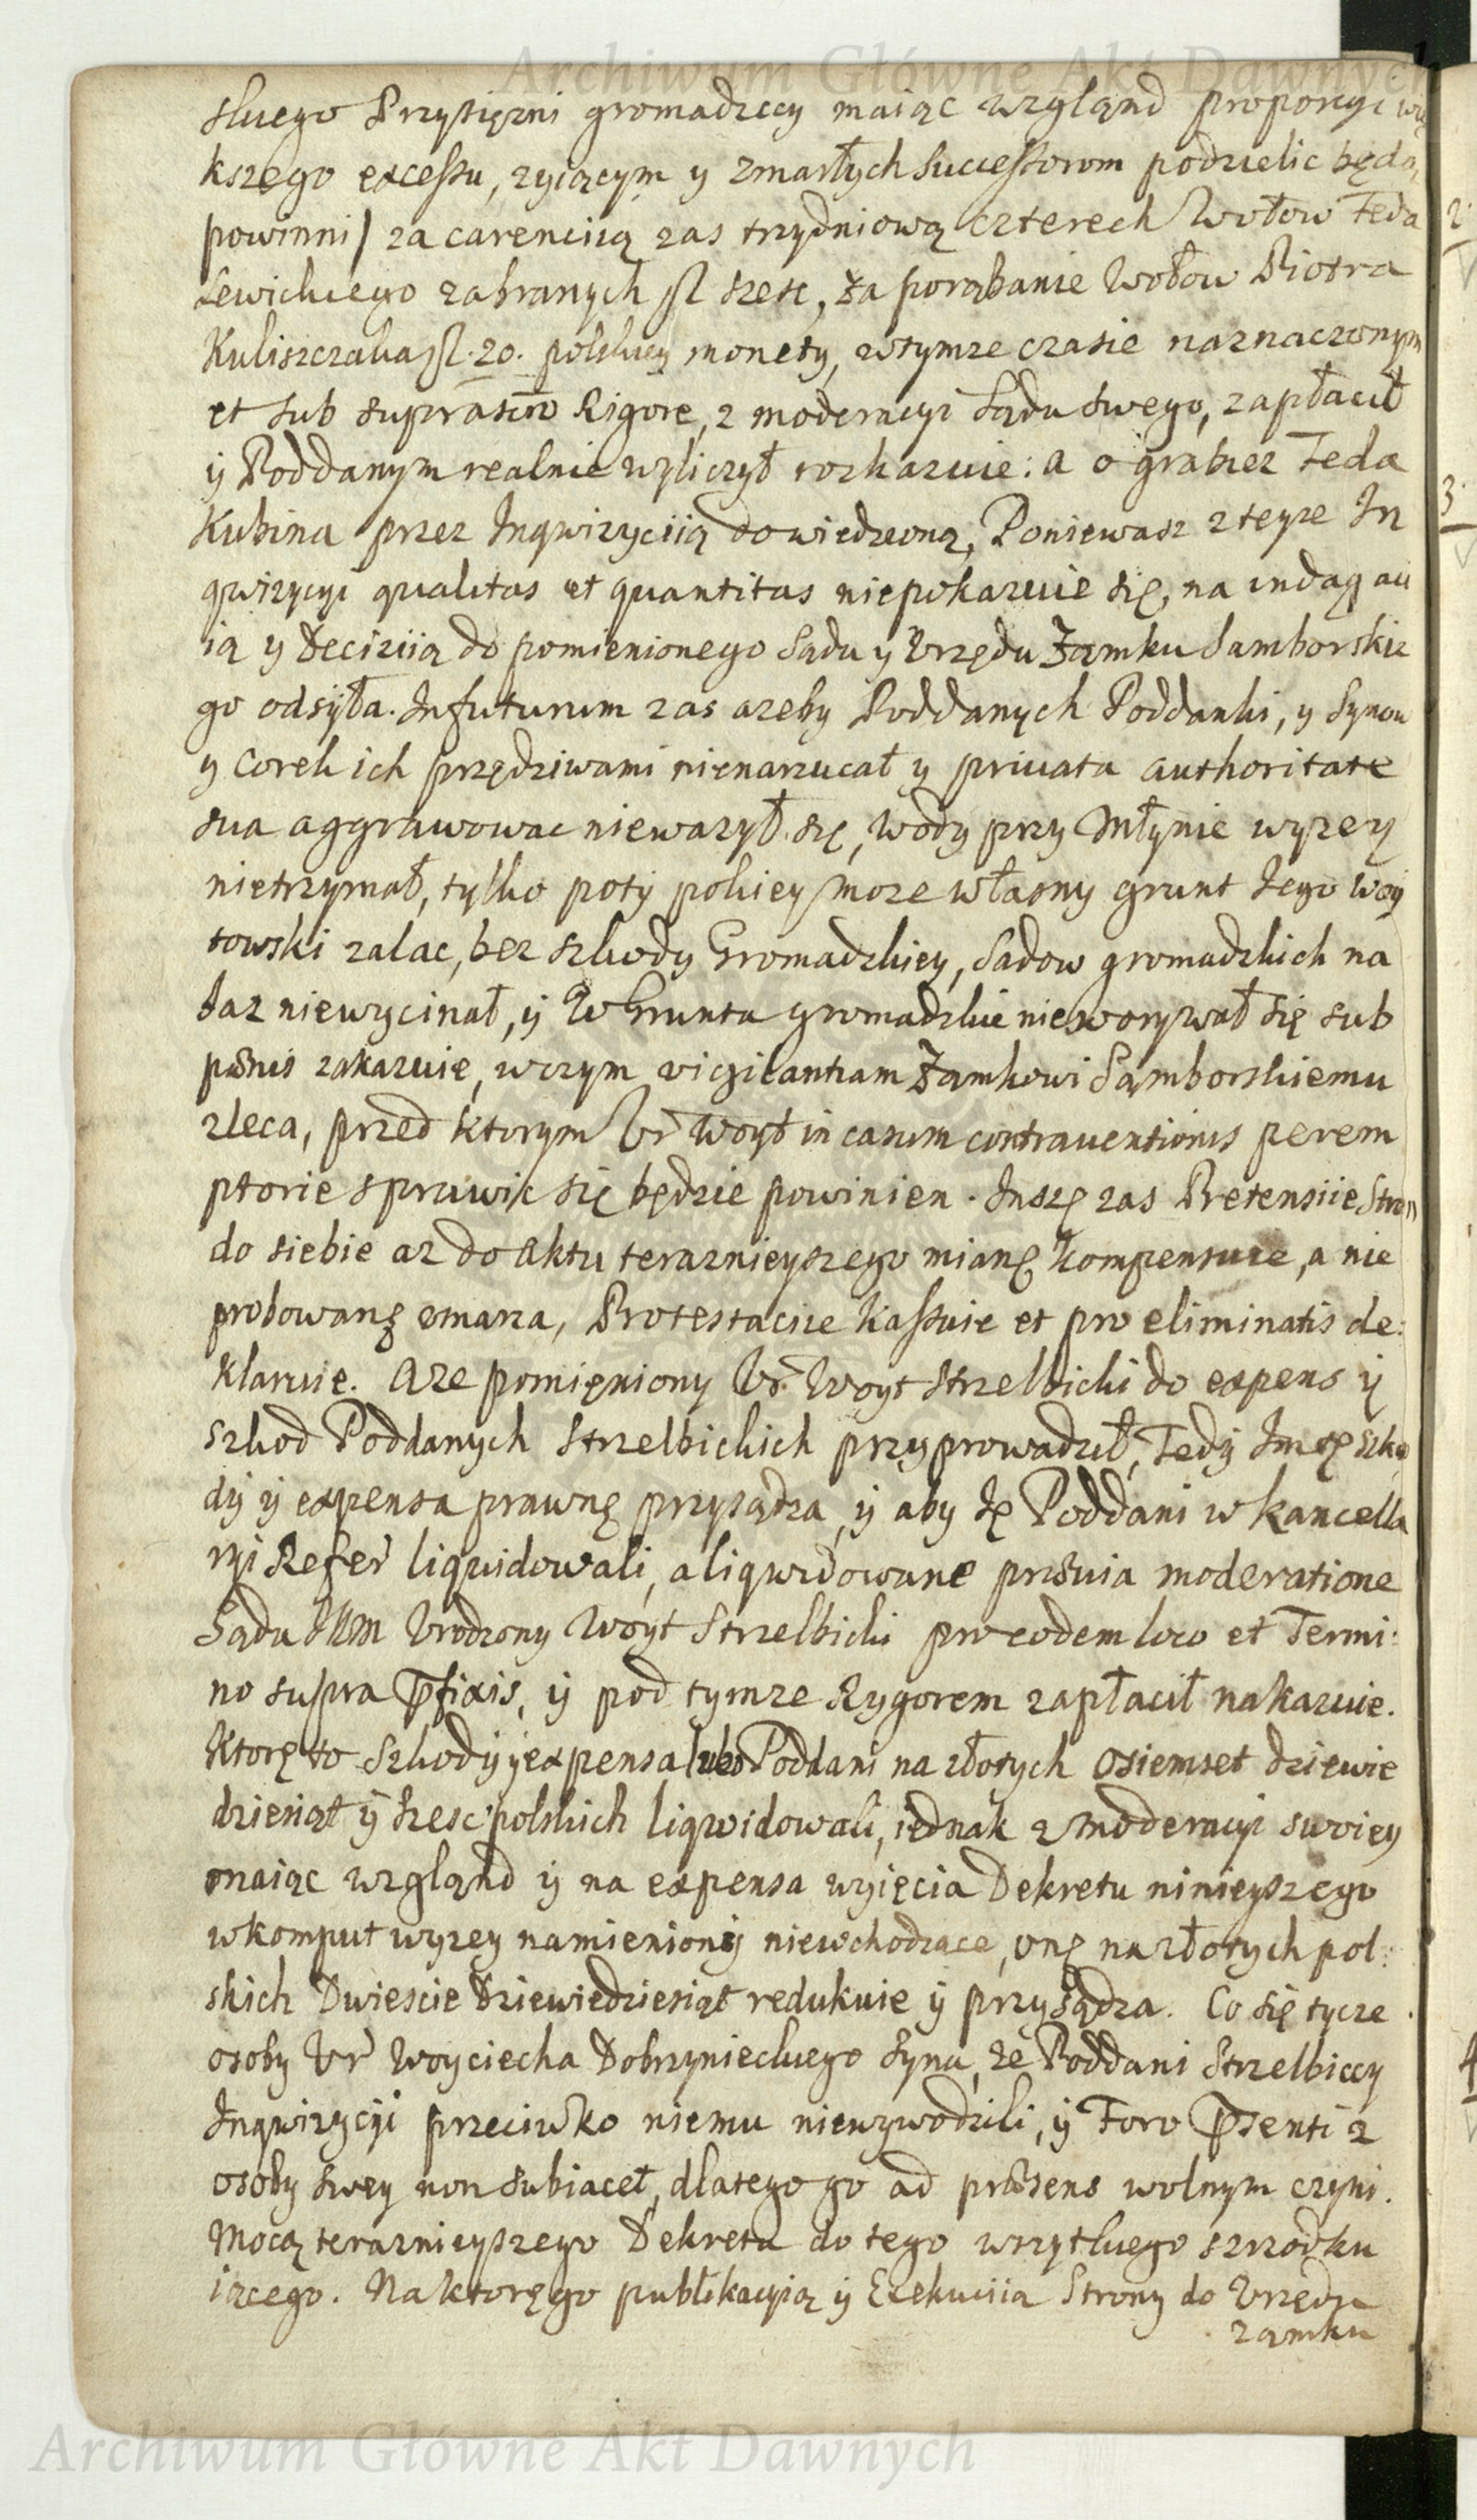 Archiwum Główne Akt Dawnych
skiego Przysięzni gromadzccy maiąc wzgląnd proporcyi wię
kszego excessu, zyiącym y zmarłych Successorom podzielic będą
powinni / za carenciią zas trzydniową czterech Wołow Feda
Lewickiego zabranych fl szesc, za porąbanie Wołow Piotra
Kuliszczaka fl. 20. polskiey monety, wtymze czasie naznaczonym
et sub suprascro Rigore, z moderacyi Sądu swego, zapłacił
ÿ Poddanym realnie wyliczył rozkazuie: a o grabiez Feda
Kubina przez Inqwizyciią dowiedzioną, Poniewasz z teyze In
qwizycyi qualitas et quantitas niepokazuie się, na indagaci
ią y Deciziią do pomienionego Sądu y Vrzędu Zamku Samborskie
go odsÿła. Infuturum zas azeby Poddanych Poddanki, y Synow
y Corek ich przędziwami nienarzucał y priuata authoritate
sua aggrawowac niewazył się, Wody przy Młynie wyzey
nietrzymał, tylko poty pokiey moze własny grunt Iego Woy
towski zalac, bez szkody Gromadzkiey, Sadow gromadzkich na
Iaz niewycinał, ÿ W Grunta gromadzkie nieworywał się sub
pænis zakazuie, wczym vigilantiam Zamkowi Samborskiemu
zleca, przed ktorym Vr Woyt in casum contrauentionis perem
ptorie sprawic się będzie powinien. Inszę zas Pretensiie Stron
do siebie az do aktu teraznieyszego mianę kompensuie, a nie
probowanę vmarza, Protestaciie kassuie et pro eliminatis de:
klaruie. Aze pomięniony Vr. Woyt Strzelbicki do expens ÿ
szkod Poddanych Strzelbickich przyprowadził, Tedÿ Im tę szko
dÿ ÿ expensa prawnę przysądza, ÿ aby Ię Poddani w kancella
ryi Refer liquidowali, a liqwidowane præuia moderatione
Sądu SKM Vrodzony Woyt Strzelbicki pro eodem loco et Termi:
no supra pfixis, ÿ pod tymze Rygorem zapłacił nakazuie.
Ktorę to Szkodÿ ÿ expensa lubo Poddani na złotych osiemset dziewie
dziesiąt ÿ szesc polskich liqwidowali, iednak z moderacyi swoiey
maiąc wzgląnd ÿ na expensa wyięcia Dekretu ninieyszego
wkomput wyzey namieniony niewchodzące, onę na złotych pol:
skich Dwiescie Dziewiedziesiąt redukuie ÿ przysądza. Co się tycze
osoby Vr Woyciecha Dobrzynieckiego Syna, ze Poddani Strzelbiccy
Inqwizycÿi przeciwko niemu niewywodzili, ÿ Foro Psenti z
osoby swey non subiacet, dlatego go ad præsens wolnym czyni.
Mocą teraznieyszego Dekretu do tego wszytkiego szrzodku
iącego. Na ktoręgo publikacyią ÿ Exekuciią Strony do Vrzędu
zamku
Archiwum Główne Akt Dawnych